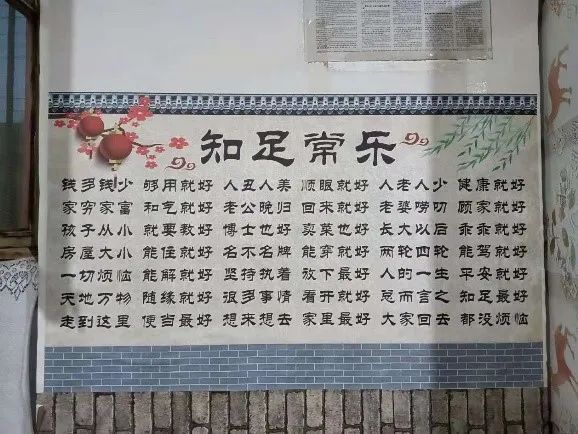 知足常乐
钱多钱少 够用就好 人丑人美 顺眼就好 人老人少 健康就好
家穷家富 和气就好 老公晚归 回来就好 老婆唠叨 顾家就好
孩子从小 就要教好 博士也好 卖菜也好 长大以后 乖乖就好
房屋大小 能住就好 名不名牌 能穿就好 两轮四轮 能驾就好
一切烦恼 能解就好 坚持执着 放下最好 人的一生 平安就好
天地万物 随缘就好 很多事情 看开就好 总而言之 知足最好
走到这里 便当最好 想来想去 家里最好 大家回去 都没烦恼